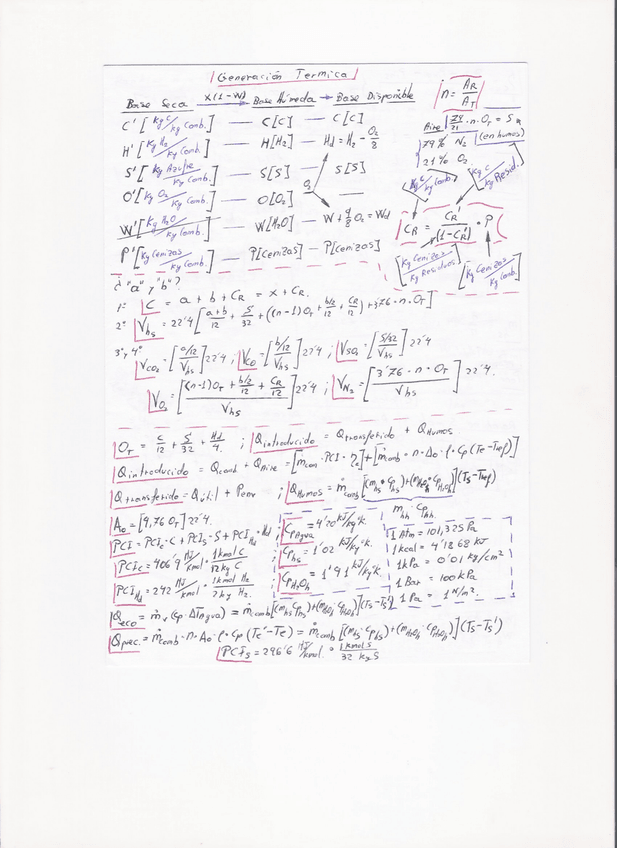 Generación Termica
Base Seca X(1-W) → Base Húmeda → Base Disponible
n = AR/AT
C' [Kg C/Kg Comb.] — C[C] — C[C]
Aire 79/21 · n · OT = S
79% N2 (en humos)
21% O2
H' [Kg H2/Kg Comb.] — H[H2] — Hd = H2 - O2/8
S' [Kg Azufre/Kg Comb.] — S[S] — S[S]
O' [Kg O2/Kg Comb.] — O[O2] O2 —
W' [Kg H2O/Kg Comb.] — W[H2O] — W + 9/8 O2 = Wd
P' [Kg Cenizas/Kg Comb.] — P[Cenizas] — P[Cenizas]
Kg C/Kg Comb. Kg C/Kg Resid.
CR = CR'/(1-CR') · P
[Kg Cenizas/Kg Residuos] [Kg Cenizas/Kg Comb.]
¿"a" y "b"?
1º C = a + b + CR = x + CR.
2º Vhs = 22'4 [(a+b)/12 + S/32 + ((n-1)OT + b/2/12 + CR/12) + 3'76 · n · OT]
3º y 4º VCO2 = [a/12/Vhs] 22'4 ; VCO = [b/12/Vhs] 22'4 ; VSO2 = [S/32/Vhs] 22'4
VO2 = [((n-1)OT + b/2/12 + CR/12)/Vhs] 22'4 ; VN2 = [3'76 · n · OT/Vhs] 22'4.
OT = C/12 + S/32 + Hd/4. ; Qintroducido = Qtransferido + QHumos
Qintroducido = Qcomb + QAire = [ṁcom · PCI · η] + [ṁcomb · n · Ao · ρ · Cp (Te - Tref)]
Qtransferido = Qútil + Prev ; QHumos = ṁcomb [(mhs · Cphs) + (mH2Oh · CpH2Oh)] (Ts - Tref)
mhh · Cphh.
Ao = [9,76 OT] 22'4.
PCI = PCIc · C + PCIs · S + PCIHd · Hd
PCIc = 406'9 MJ/kmol · 1 kmol C/12 kg C
PCIHd = 242 MJ/kmol · 1 kmol H2/2 kg H2.
CpAgua = 4'20 kJ/Kg ºK.
Cphs = 1'02 KJ/Kg ºK.
CpH2Oh = 1'91 kJ/Kg ºK.
1 Atm = 101,325 Pa
1 kcal = 4'1868 KJ
1 kPa = 0'01 Kg/cm²
1 Bar = 100 kPa
1 Pa = 1 N/m².
Qeco = ṁv (Cp · ΔTAgua) = ṁcomb [(mhs · Cphs) + (mH2Oh · CpH2Oh)] (Ts - Ts')
Qprec. = ṁcomb · n · Ao · ρ · Cp (Te' - Te) = ṁcomb [(mhs · Cphs) + (mH2Oh · CpH2Oh)] (Ts - Ts')
PCIs = 296'6 MJ/kmol. · 1 kmol S/32 Kg S